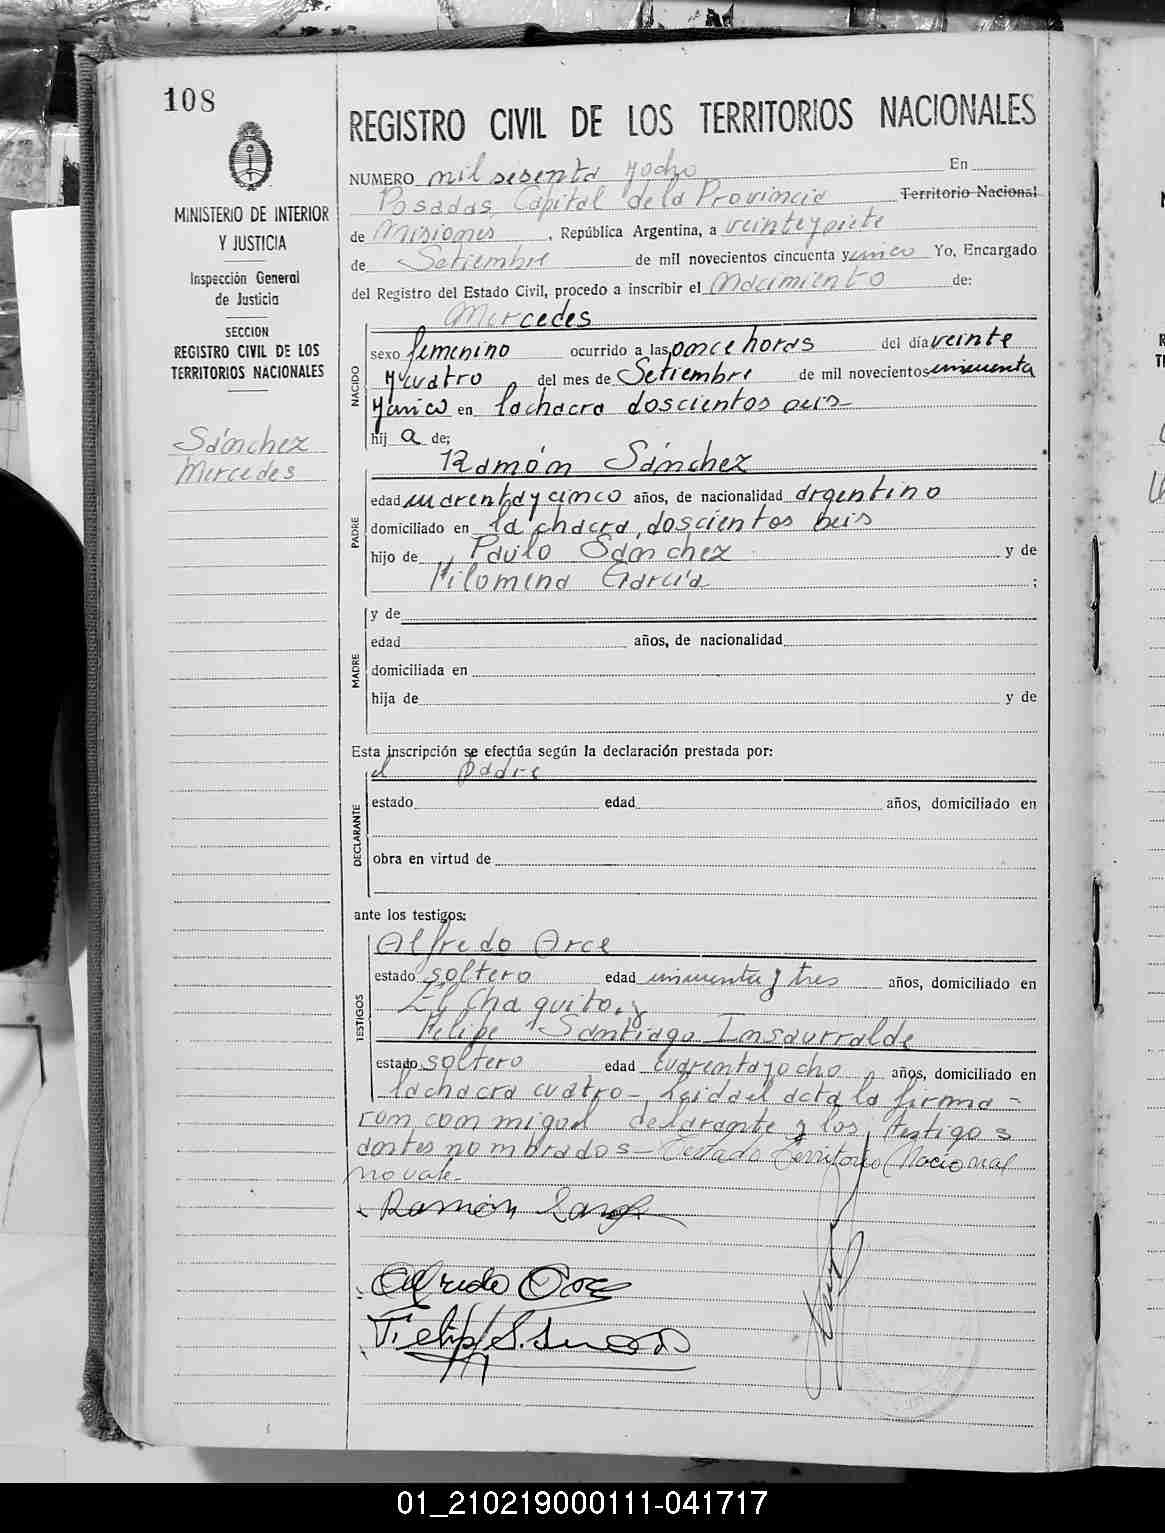 108
REGISTRO CIVIL DE LOS TERRITORIOS NACIONALES
MINISTERIO DE INTERIOR
Y JUSTICIA
Inspección General
de Justicia
SECCION
REGISTRO CIVIL DE LOS
TERRITORIOS NACIONALES
Sánchez
Mercedes
NUMERO mil sesenta y ocho En
Posadas, Capital de la Provincia Territorio Nacional
de Misiones, República Argentina, a veinte y siete
de Setiembre de mil novecientos cincuenta y cinco Yo, Encargado
del Registro del Estado Civil, procedo a inscribir el Nacimiento de:
NACIDO
Mercedes
sexo femenino ocurrido a las once horas del día veinte
y cuatro del mes de Setiembre de mil novecientos cincuenta
y cinco en la chacra doscientos seis-
hij a de;
PADRE
Ramón Sánchez
edad cuarenta y cinco años, de nacionalidad argentino
domiciliado en la chacra, doscientos seis
hijo de Paulo Sánchez y de
Filomena García ;
MADRE
y de
edad años, de nacionalidad
domiciliada en
hija de y de
Esta inscripción se efectúa según la declaración prestada por:
DECLARANTE
el padre
estado edad años, domiciliado en
obra en virtud de
ante los testigos:
TESTIGOS
Alfredo Arce
estado soltero edad cincuenta y tres años, domiciliado en
El Chaquito, y
Felipe Santiago Insaurralde
estado soltero edad cuarenta y ocho años, domiciliado en
la chacra cuatro- Leida el acta la firma-
ron conmigo el declarante y los testigos
antes nombrados- Testado Territorio Nacional
no vale-
Ramón
Alfredo Arce
01_210219000111-041717